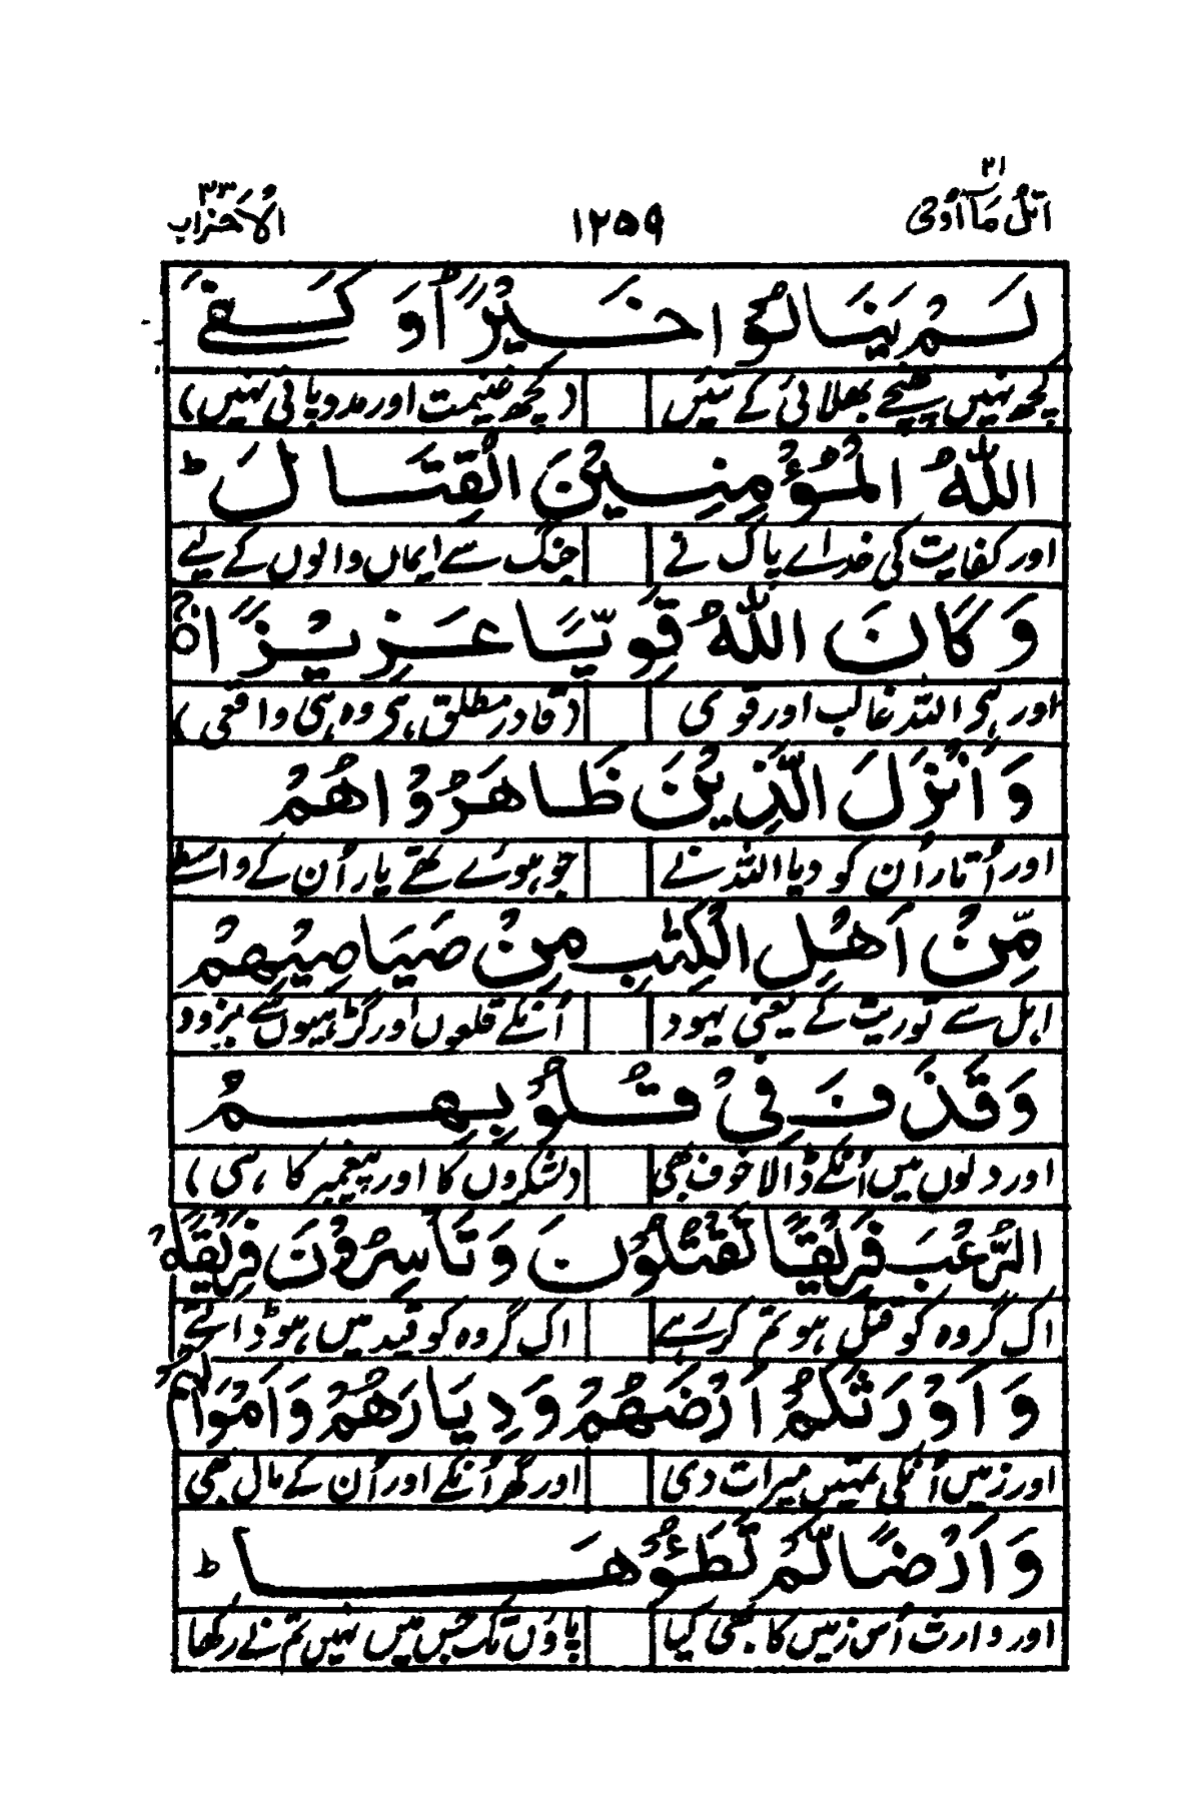 اتل ما اوحی ۲۱ ۱۲۵۹ الاحزاب ۳۳
لَمْ يَنَالُوْا خَيْرًا ؕ وَ كَفَى
کچھ نہیں پہنچے بھلائی کے تئیں (کچھ غنیمت اور مدد پائی نہیں)
اللّٰهُ الْمُؤْمِنِيْنَ الْقِتَالَ ؕ
اور کفایت کی خدائے پاک نے جنگ سے ایماں والوں کے لیے
وَ كَانَ اللّٰهُ قَوِيًّا عَزِيْزًا
اور ہے اللہ غالب اور قوی (قادر مطلق ہے وہ ہی واقعی)
وَ اَنْزَلَ الَّذِيْنَ ظَاهَرُوْا هُمْ
اور اُتار اُن کو دیا اللہ نے جو ہوئے تھے یار اُن کے واسطے
مِّنْ اَهْلِ الْكِتٰبِ مِنْ صَيَاصِيْهِمْ
اہل سے توریت کے یعنی یہود اُنکے قلعوں اور گڑھیوں سے بزود
وَ قَذَفَ فِيْ قُلُوْبِهِمُ
اور دلوں میں اُنکے ڈالا خوف بھی (لشکروں کا اور پیغمبر کا ہی)
الرُّعْبَ فَرِيْقًا تَقْتُلُوْنَ وَ تَاْسِرُوْنَ فَرِيْقًا
اک گروہ کو قتل ہو تم کر رہے اک گروہ کو قید میں ہو ڈالتے
وَ اَوْرَثَكُمْ اَرْضَهُمْ وَ دِيَارَهُمْ وَ اَمْوَالَهُمْ
اور زمیں اُنکی تمہیں میراث دی اور گھر اُنکے اور اُن کے مال بھی
وَ اَرْضًا لَّمْ تَطَـُٔوْهَا ؕ
اور وارث اُس زمیں کا بھی کیا پاؤں تک جس میں نہیں تم نے رکھا